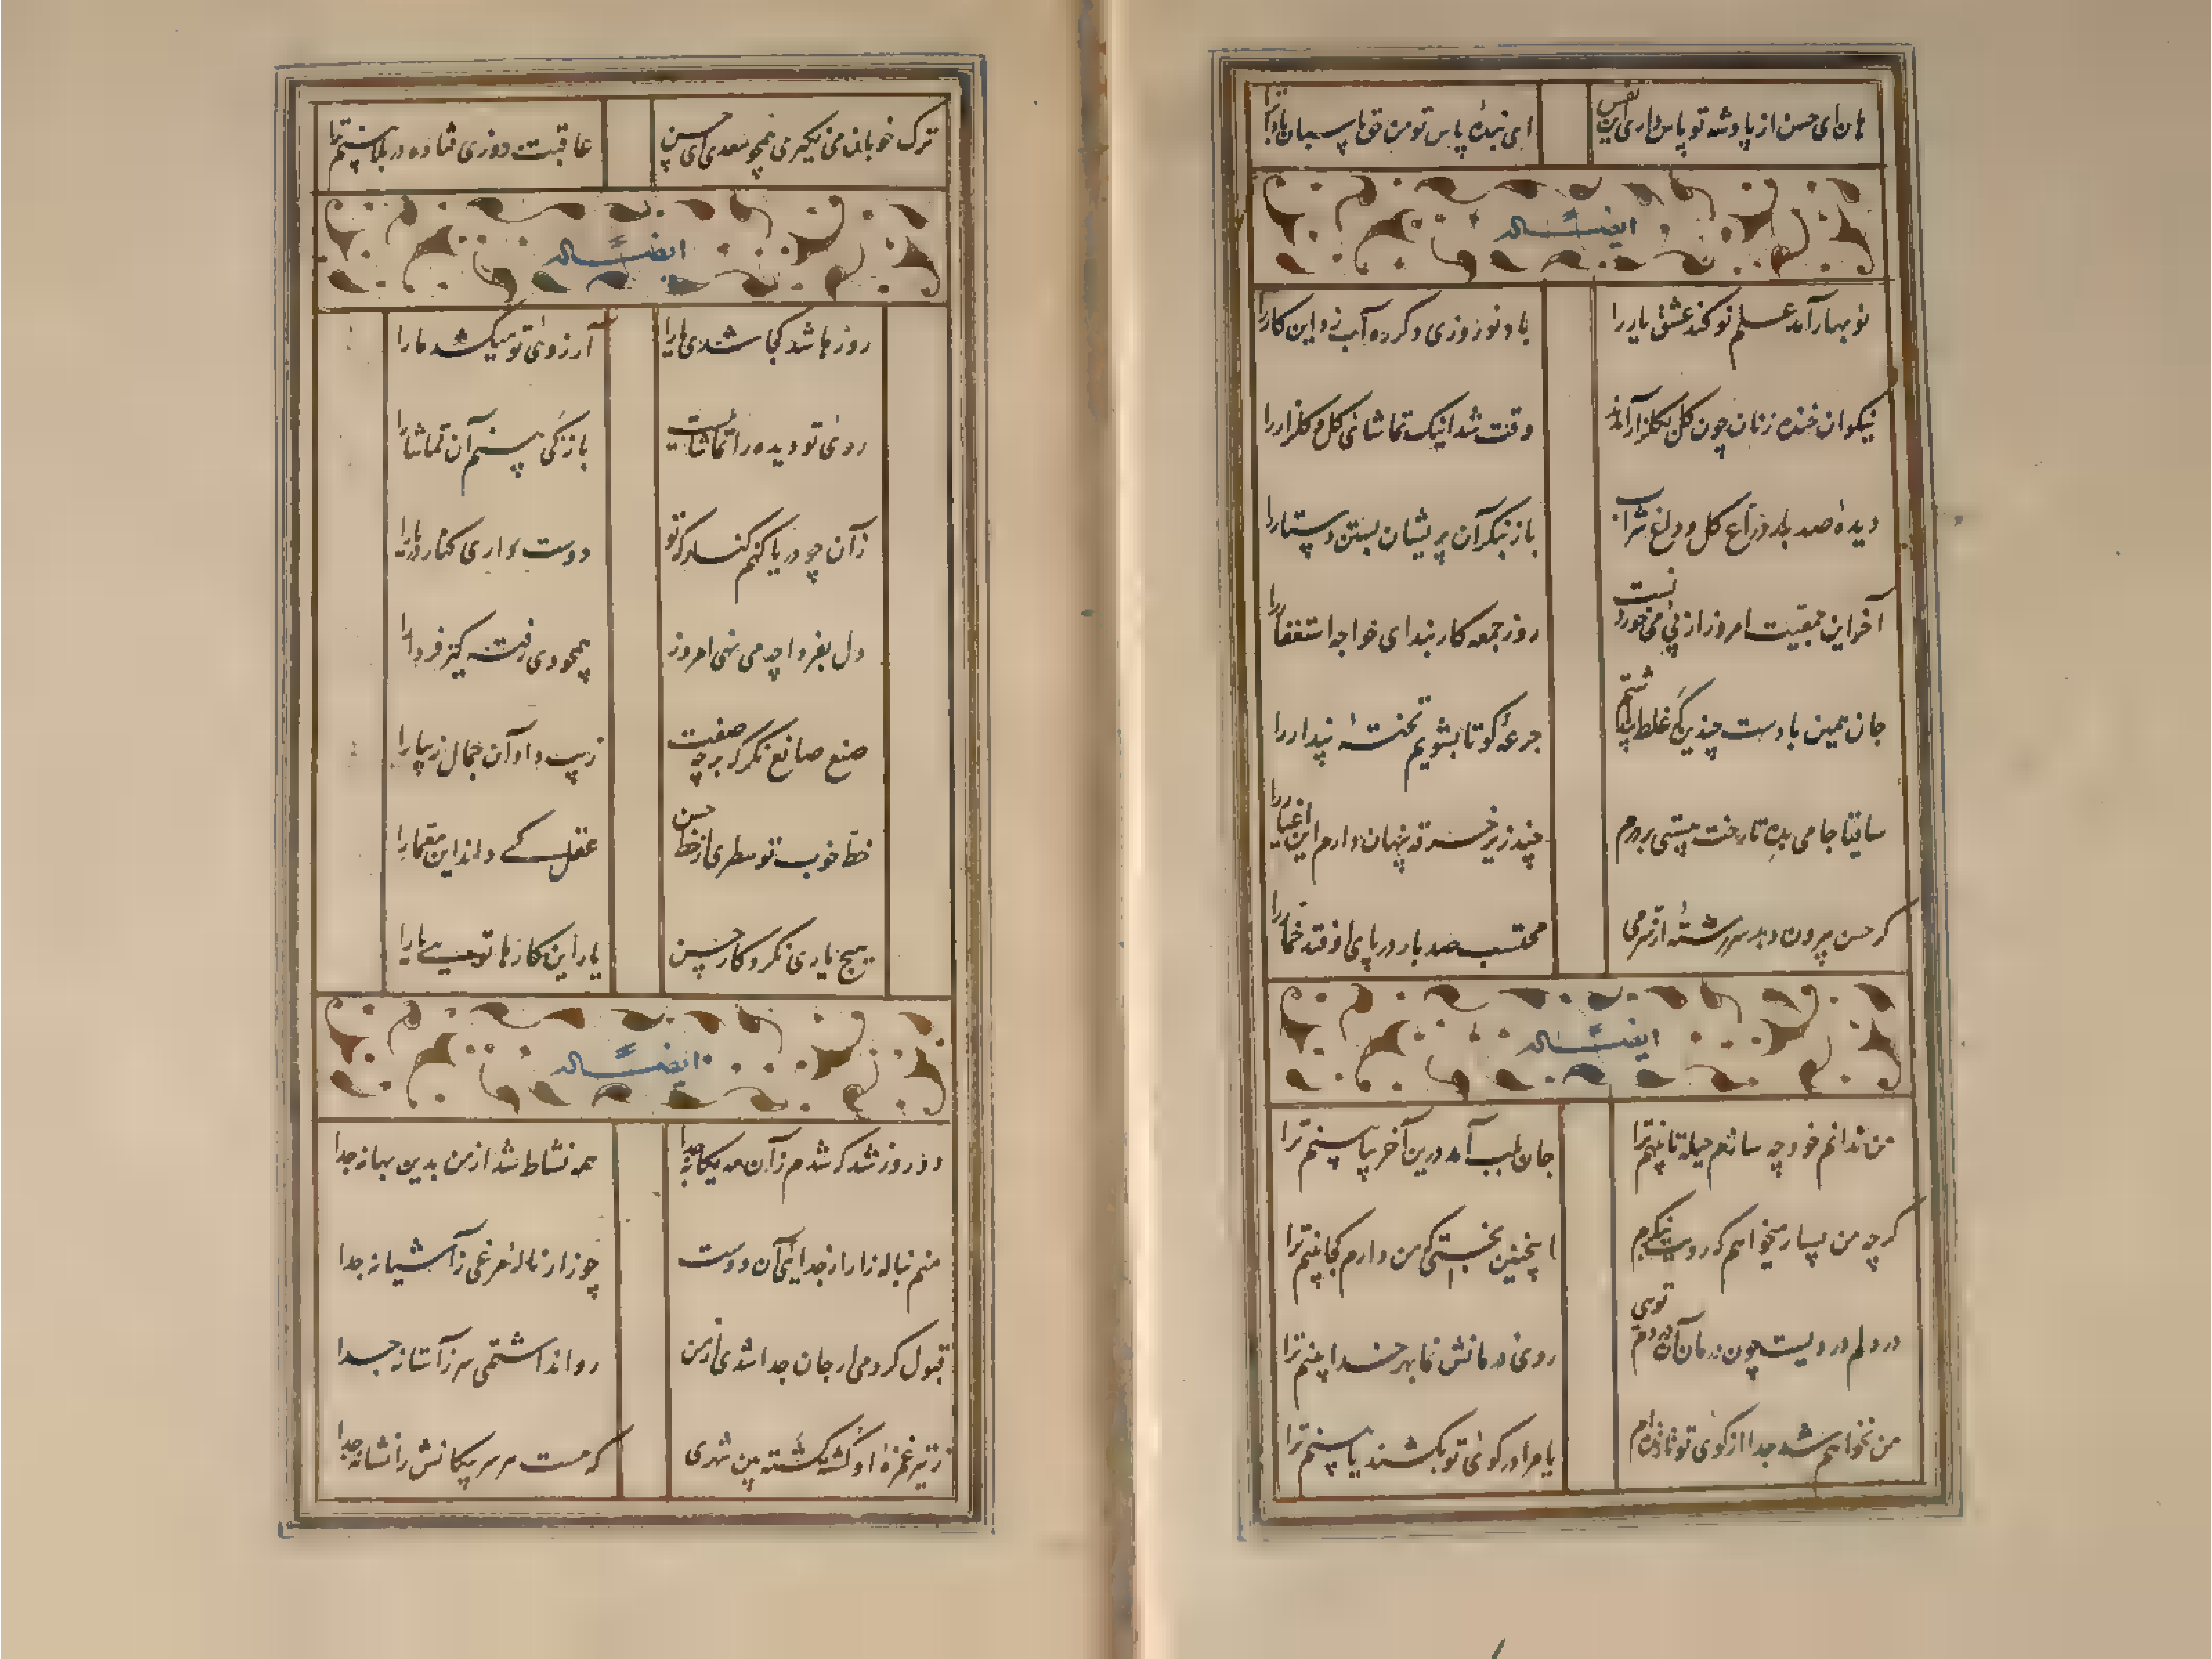 هان ای حسن از پادشه تو پاس داری این نفس
ای بنده پاس تو من حق پاسبان بادا ترا
ایضاً له
نوبهار آمد علم نو کند عشق یار را
باد نوروزی دگر ره آب زد این کار را
نیکوان خنده زنان چون گل بگلزار آمدند
وقت شد اینک تماشائی گل و گلزار را
دیدهٔ صد بار در باغ گل و داغ شراب
باز بنگر آن پریشان بستن دستار را
آخر این جمعیت امروز از پی می خوردنست
روز جمعه کار بند ای خواجه استغفار را
جان همین بادست چندین گه غلط پنداشتم
جرعهٔ کو تا بشویم تختهٔ پندار را
ساقیا جامی بده تا رخت هستی بر درم
چند زیر خرقه پنهان دارم این اغیار را
گر حسن بیرون دهد سررشتهٔ از سر می
محتسب صد بار در پای اوفتد خمار را
ایضاً له
من ندانم خود چه سازم حیله تا بینم ترا
جان بلب آمد درین آخر بیا بینم ترا
گرچه من بسیار میخواهم که رویت بنگرم
اینچنین بختی که من دارم کجا بینم ترا
در دلم دردیست چون درمان آن دردم توئی
روی درمانش نما بهر خدا بینم ترا
من نخواهم شد جدا از کوی تو تا زنده‌ام
یا مرا در کوئی تو بکشند یا بینم ترا
ترک خوبان می نگیری همچو سعدی ای حسن
عاقبت روزی فتاده در بلا بینم ترا
ایضاً له
روزها شد کجا شدی یارا
آرزوئی تو میکشد ما را
روئی تو دیده را تماشائیست
باز کی بینم آن تماشا را
زان چو دریا کنم کنار که تو
دوست داری کنار دریا را
دل بفردا چه می نهی امروز
همچو دی رفته گیر فردا را
صنع صانع نگر که بر چه صفت
زیب داد آن جمال زیبا را
خط خوب تو سطری از خط حسن
عقل کی داند این معما را
هیچ یاری نکرد کار حسن
یار این کارها توئی یارا
ایضاً له
دو روز شد که شدم زان مه یگانه جدا
همه نشاط شد از من بدین بهانه جدا
منم بناله زار از جدائی آن دوست
چو زار نالهٔ مرغی ز آشیانه جدا
قبول کردمی ار جان جدا شدی از من
روا نداشتمی سر ز آستانه جدا
ز تیر غمزهٔ او گشته گشته بین شهری
که هست هر سر پیکانش را نشانه جدا